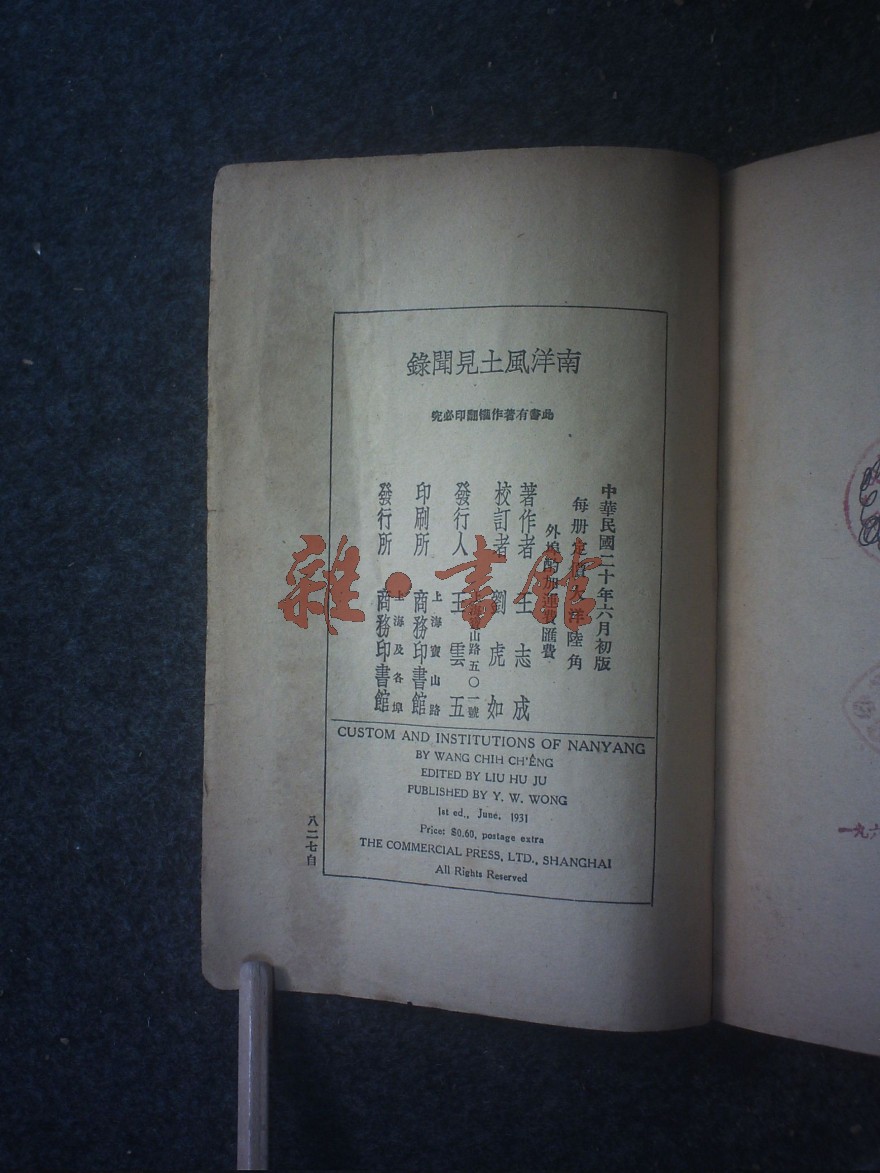 南洋風土見聞錄
此書有著作權翻印必究
中華民國二十年六月初版
每册定價大洋陸角
外埠酌加運費匯費
著作者 王志成
校訂者 劉虎如
發行人 王雲五
山路五〇一號
印刷所 商務印書館
上海寶山路
發行所 商務印書館
上海及各埠
CUSTOM AND INSTITUTIONS OF NANYANG
BY WANG CHIH CH'ÊNG
EDITED BY LIU HU JU
PUBLISHED BY Y. W. WONG
1st ed., June, 1931
Price: $0.60, postage extra
THE COMMERCIAL PRESS, LTD., SHANGHAI
All Rights Reserved
八二七自
雜·書館
一九六